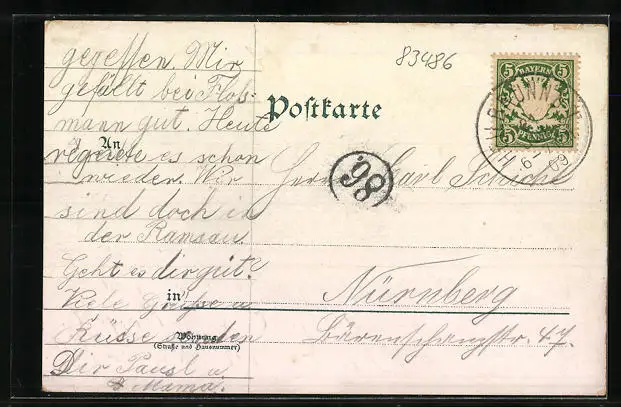 83486
5 BAYERN 5
5 PFENNIG 5
Postkarte
gegessen. Mir
gefällt bei Floß=
mann gut. Heute
regnete es schon
wieder. Wir
sind doch in
der Ramsau.
Geht es dir gut?
Viele Grüße u
Küsse senden
Dir Pausl u.
Mama.
An
Herrn
98
in Nürnberg
Wohnung
(Straße und Hausnummer)
Bärenschanzstr. 47.